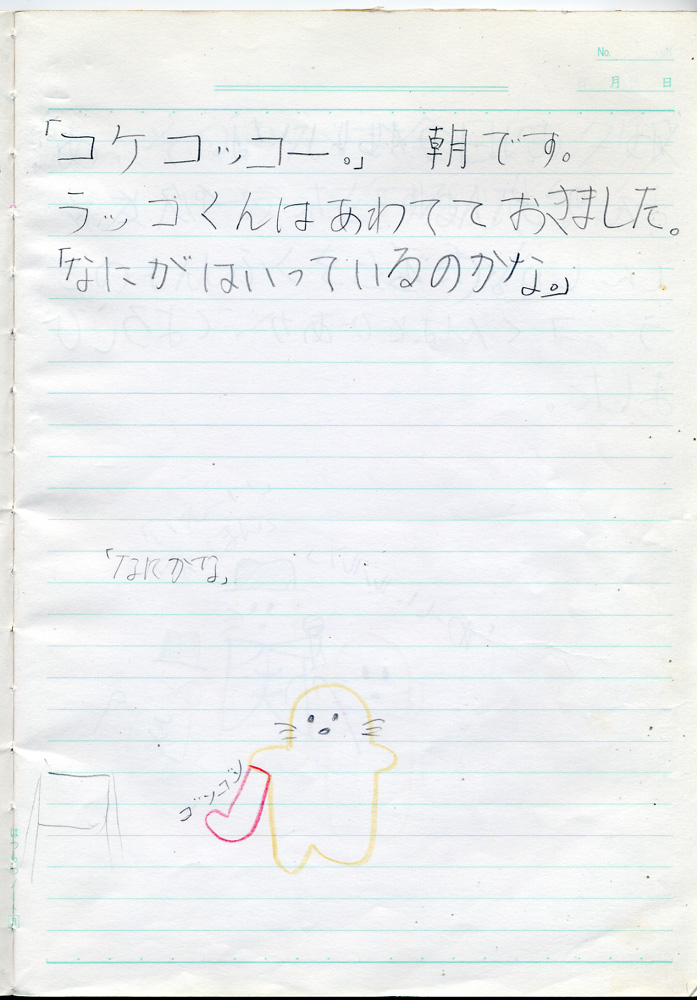 No.
月 日
「コケコッコー。」 朝です。
ラッコくんはあわてておきました。
「なにがはいっているのかな。」
「なにかな」
ゴソゴソ